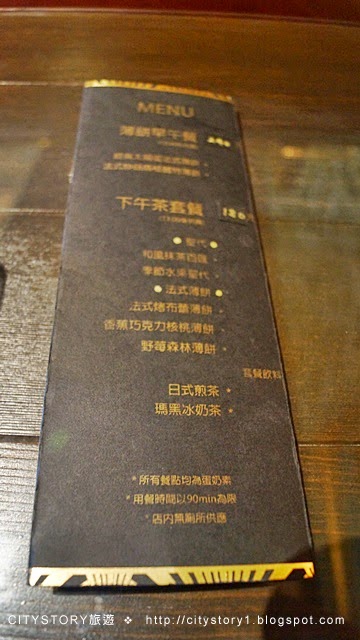 MENU
薄餅早午餐
下午茶套餐 180
聖代
和風抹茶百匯
季節水果聖代
法式薄餅
法式烤布蕾薄餅
香蕉巧克力核桃薄餅
野莓森林薄餅
套餐飲料
日式煎茶
瑪黑冰奶茶
*所有餐點均為蛋奶素
*用餐時間以90min為限
*店內無廁所供應
CITYSTORY旅遊 ❖ http://citystory1.blogspot.com